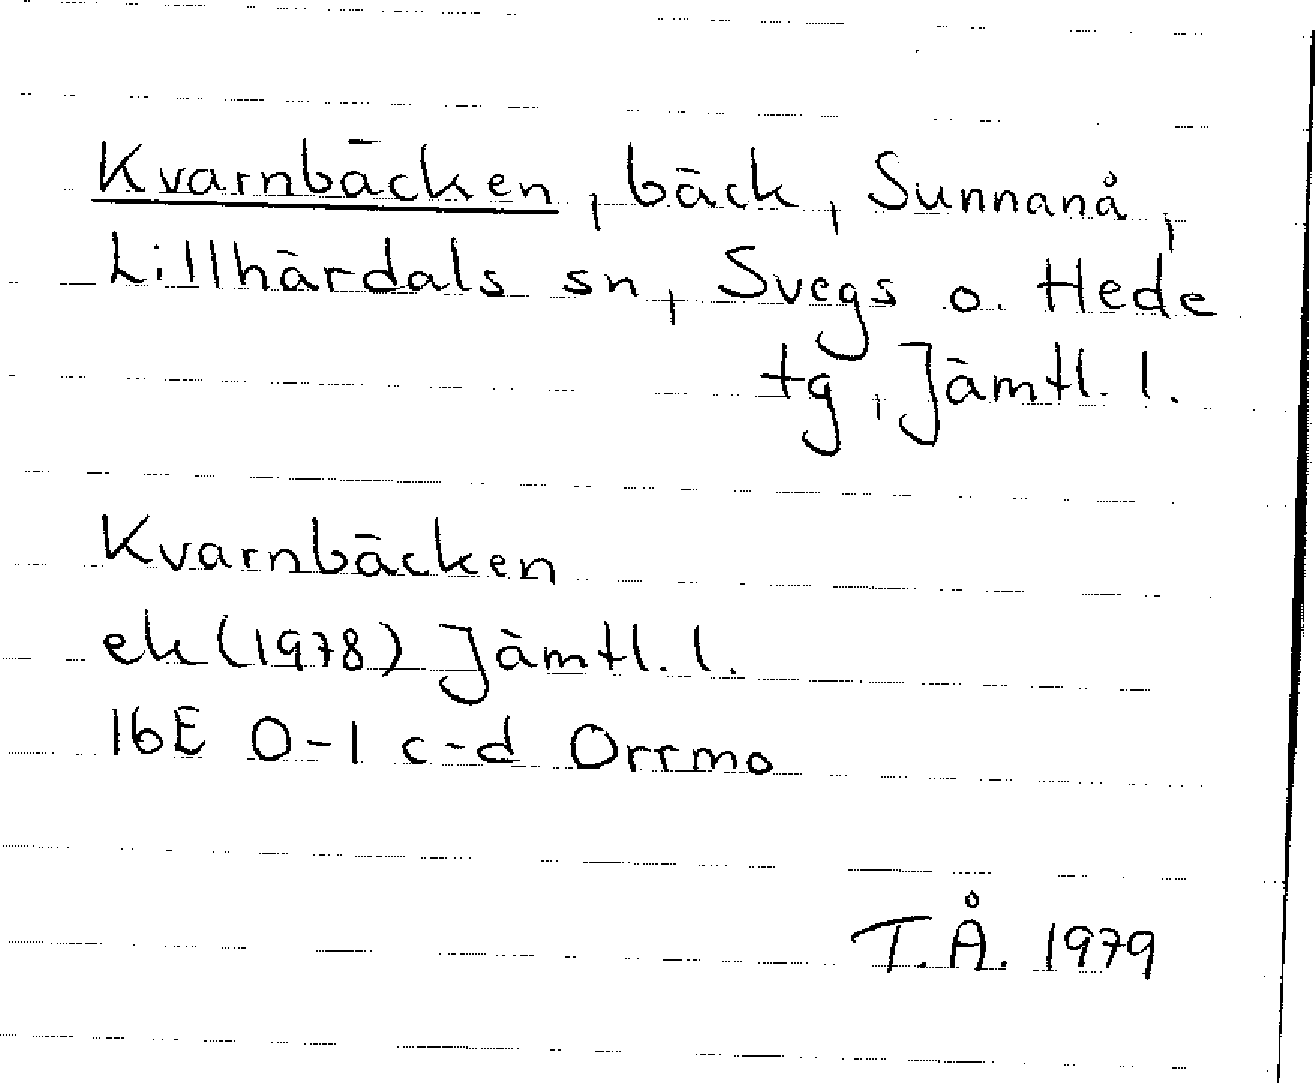 Kvarnbäcken, bäck, Sunnanå,
Lillhärdals sn, Svegs o. Hede
tg, Jämtl. l.
Kvarnbäcken
ek (1978) Jämtl. l.
16E 0-1 c-d Orrmo
T.Å. 1979